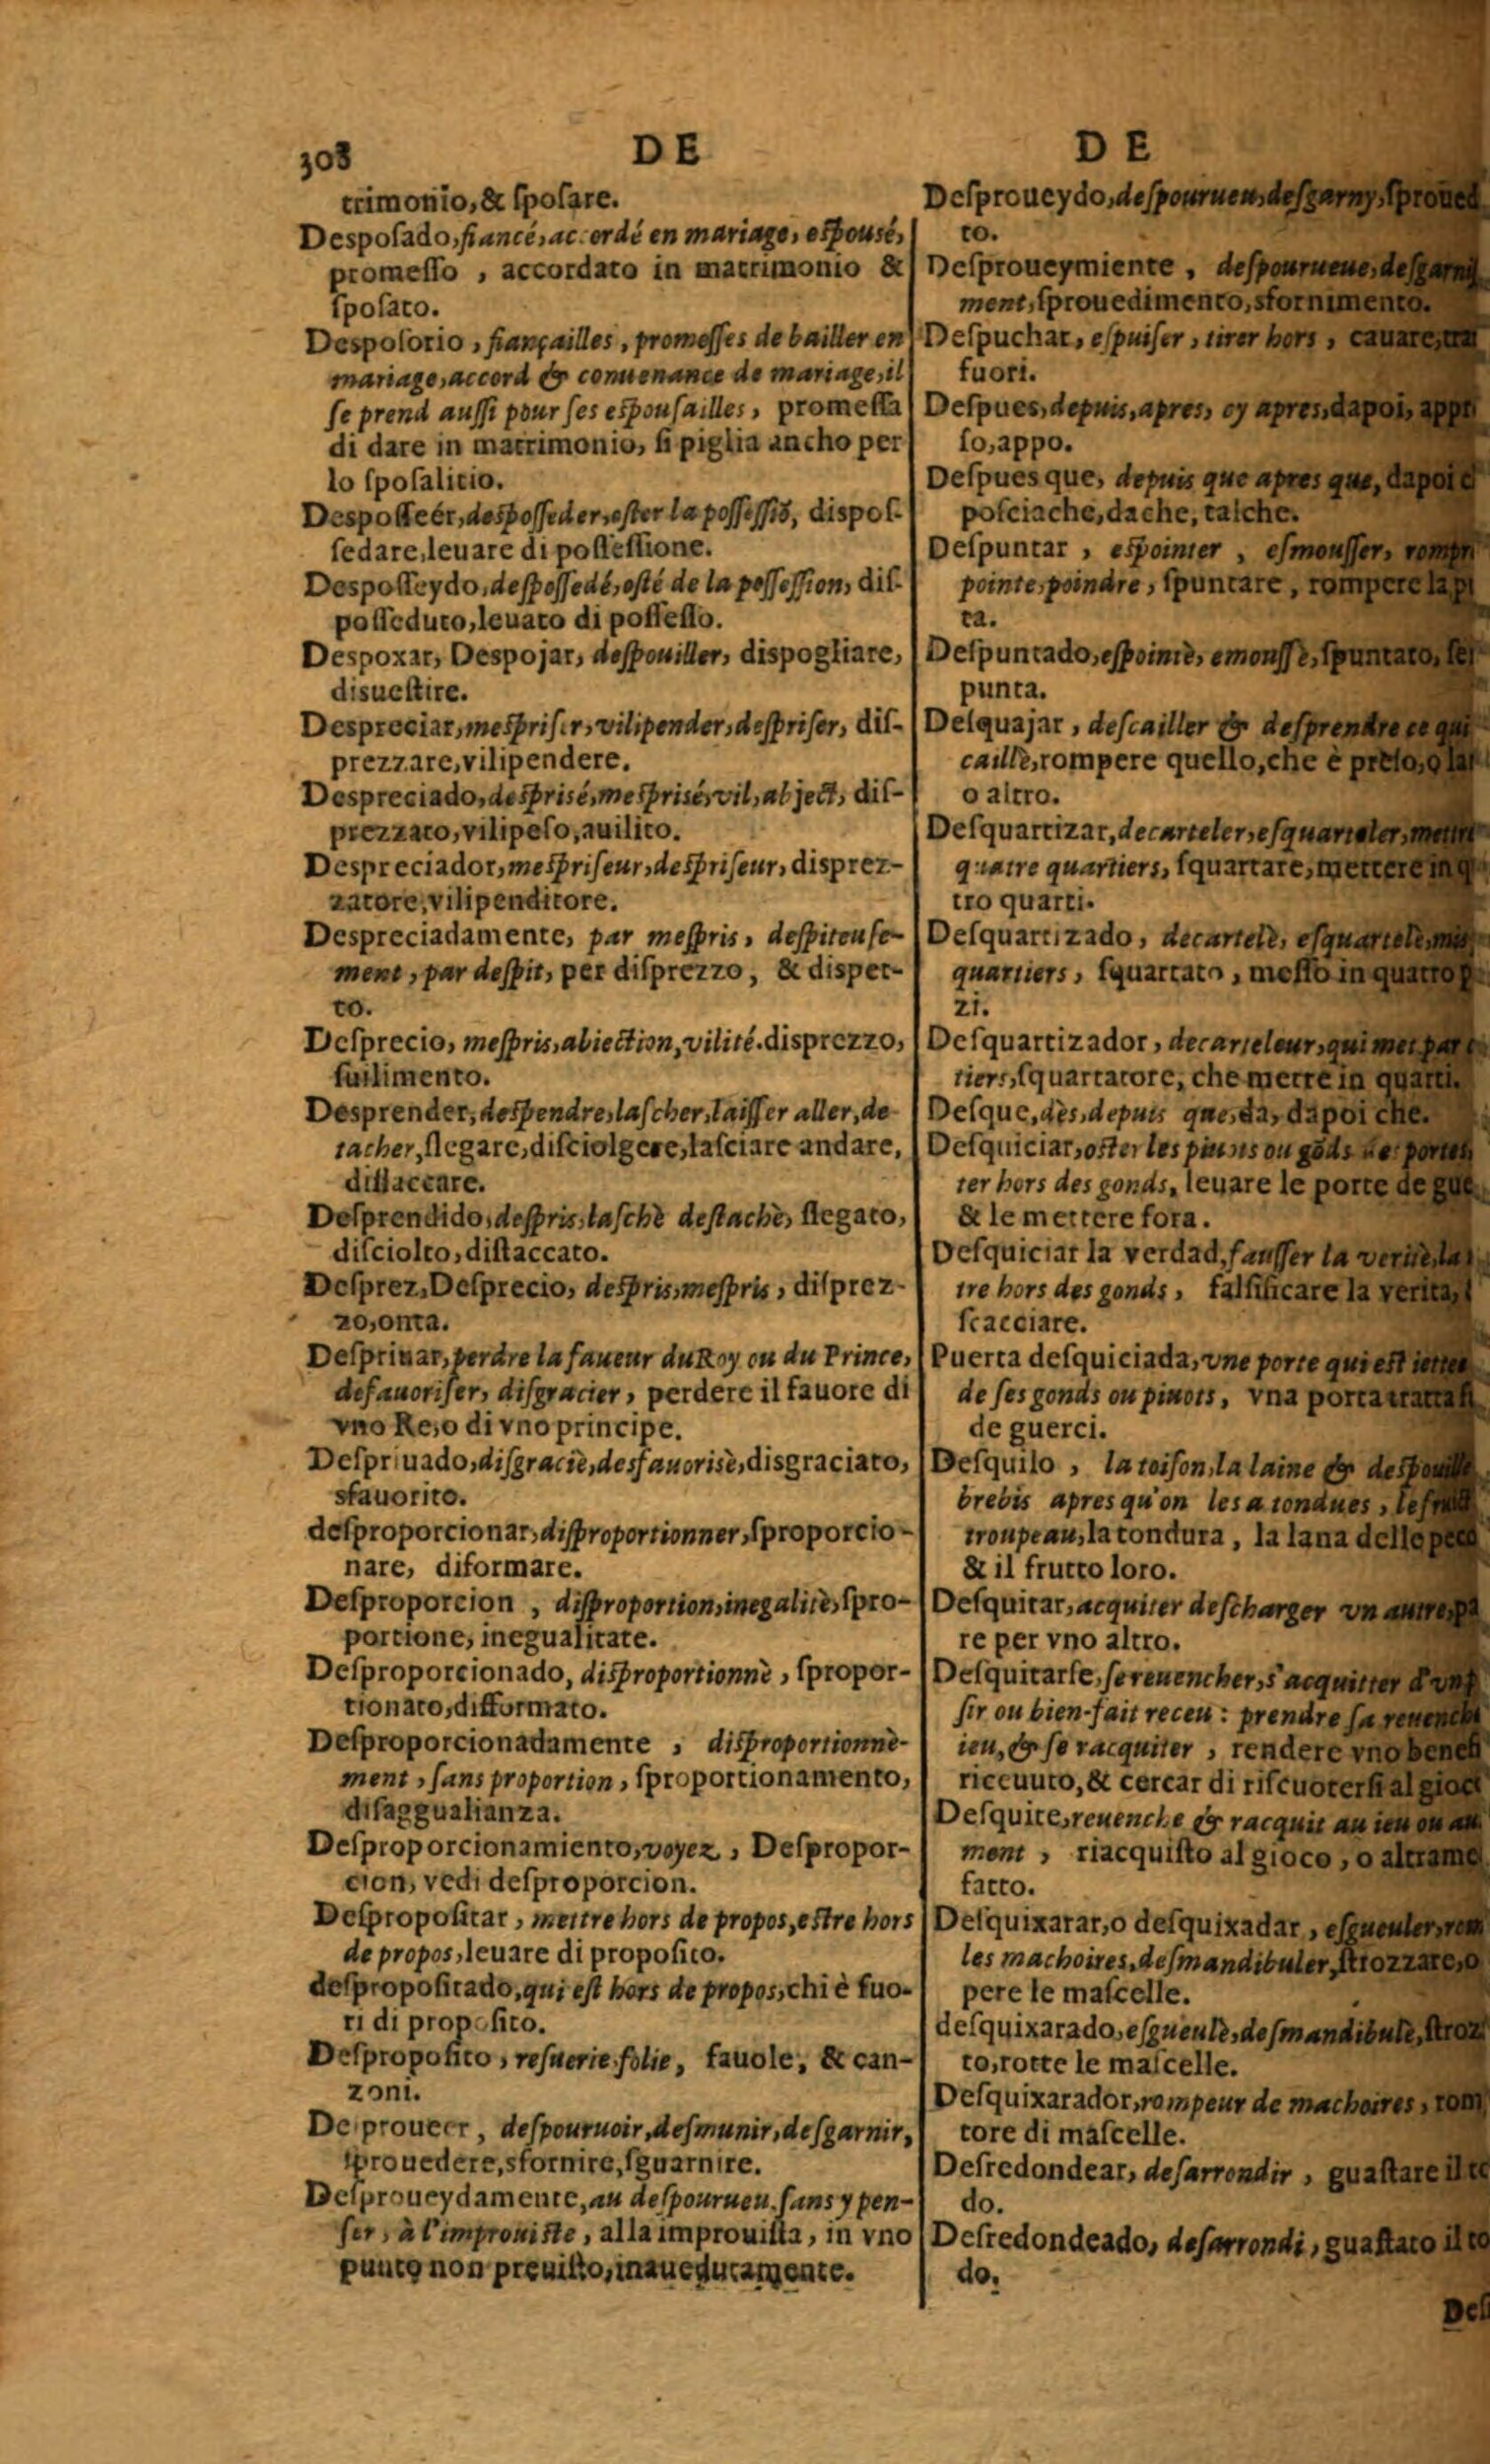 308
DE
DE
trimonio, & ſpoſare.
Despoſado, fiancé, accordé en mariage, espousé,
promeſſo , accordato in matrimonio &
ſpoſato.
Despoſorio , fiançailles , promeſſes de bailler en
mariage, accord & conuenance de mariage, il
ſe prend auſſi pour ſes espouſailles , promeſſa
di dare in matrimonio, ſi piglia ancho per
lo ſpoſalitio.
Despoſſeér, despoſſeder, oſter la poſſeſſiõ, dispoſ-
ſedare, leuare di poſſeſſione.
Despoſſeydo, deſpoſſedé, oſté de la poſſeſſion, diſ-
poſſeduto, leuato di poſſeſſo.
Despoxar, Despojar, deſpouiller, dispogliare,
disueſtire.
Despreciar, mespriſer, vilipender, deſpriſer, diſ-
prezzare, vilipendere.
Despreciado, desprisé, mesprisé, vil, abject, diſ-
prezzato, vilipeſo, auilito.
Despreciador, mespriſeur, despriſeur, disprez-
zatore, vilipenditore.
Despreciadamente, par meſpris , deſpiteuſe-
ment , par deſpit, per diſprezzo , & dispet-
to.
Deſprecio, meſpris, abiection, vilité. disprezzo,
ſuilimento.
Desprender, despendre, laſcher, laiſſer aller, de
tacher, ſlegare, diſciolgere, laſciare andare,
diſtaccare.
Deſprendido, deſpris, laſchè deſtachè, ſlegato,
diſciolto, diſtaccato.
Deſprez, Deſprecio, despris, meſpris , diſprez-
zo, onta.
Deſpriuar, perdre la faueur du Roy ou du Prince,
defauoriſer, diſgracier , perdere il fauore di
vno Re, o di vno principe.
Deſpriuado, diſgraciè, desfauorisè, disgraciato,
sfauorito.
deſproporcionar, diſproportionner, ſproporcio-
nare, diformare.
Deſproporcion , diſproportion, inegalitè, ſpro-
portione, inegualitate.
Deſproporcionado, disproportionnè , ſpropor-
tionato, difformato.
Deſproporcionadamente , disproportionnè-
ment , ſans proportion , ſproportionamento,
diſaggualianza.
Deſproporcionamiento, voyez , Deſpropor-
cion, vedi deſproporcion.
Deſpropoſitar , mettre hors de propos, eſtre hors
de propos, leuare di propoſito.
deſpropoſitado, qui eſt hors de propos, chi è fuo-
ri di propoſito.
Deſpropoſito , reſuerie folie, fauole, & can-
zoni.
Deproueer , deſpouruoir, deſmunir, deſgarnir,
ſprouedere, sfornire, ſguarnire.
Deſproueydamente, au deſpourueu. ſans y pen-
ſer , à l'improuiſte , alla improuiſta , in vno
punto non preuiſto, inauedutamente.
Deſproueydo, deſpourueu, deſgarny, ſproued
to.
Deſproueymiente , deſpourueue, deſgarni
ment, ſprouedimento, sfornimento.
Deſpuchar, eſpuiſer , tirer hors , cauare, tra
fuori.
Deſpues, depuis, apres, cy apres, dapoi, appr
ſo, appo.
Deſpues que, depuis que apres que, dapoi c
poſciache, dache, talche.
Deſpuntar , espointer , eſmouſſer, rompr
pointe, poindre , ſpuntare , rompere la p
ta.
Deſpuntado, eſpointè, emouſſè, ſpuntato, ſe
punta.
Deſquajar , deſcailler & deſprendre ce qui
caillè, rompere quello, che è preſo, o lat
o altro.
Deſquartizar, decarteler, eſquarteler, mettre
quatre quartiers, ſquartare, mettere in q
tro quarti.
Deſquartizado , decartelè, eſquartelè, mis
quartiers , ſquartato , meſſo in quatro p
zi.
Deſquartizador , decarteleur, qui met par
tiers, ſquartatore, che mette in quarti.
Deſque, dès, depuis que, da, dapoi che.
Deſquiciar, oſter les piuots ou gõds des portes,
ter hors des gonds, leuare le porte de gue
& le mettere fora.
Deſquiciar la verdad, fauſſer la veritè, la
tre hors des gonds , falſificare la verita,
ſcacciare.
Puerta deſquiciada, vne porte qui eſt iettee
de ſes gonds ou piuots , vna porta tratta
de guerci.
Deſquilo , la toiſon, la laine & despouille
brebis apres qu'on les a tondues , le fruict
troupeau, la tondura , la lana delle peco
& il frutto loro.
Deſquitar, acquiter deſcharger vn autre, pa
re per vno altro.
Deſquitarſe, ſe reuencher, s'acquitter d'vn p
ſir ou bien-fait receu : prendre ſa reuenche
ieu, & ſe racquiter , rendere vno benefi
riceuuto, & cercar di riſcuoterſi al gioc
Deſquite, reuenche & racquit au ieu ou au
ment , riacquiſto al gioco , o altrame
fatto.
Deſquixarar, o deſquixadar , eſgueuler, rom
les machoires, deſmandibuler, ſtrozzare, o
pere le maſcelle.
deſquixarado, eſgueulè, deſmandibulè, ſtroz
to, rotte le maſcelle.
Deſquixarador, rompeur de machoires , rom
tore di maſcelle.
Deſredondear, deſarrondir , guaſtare il to
do.
Deſredondeado, deſarrondi , guaſtato il to
do.
Deſ